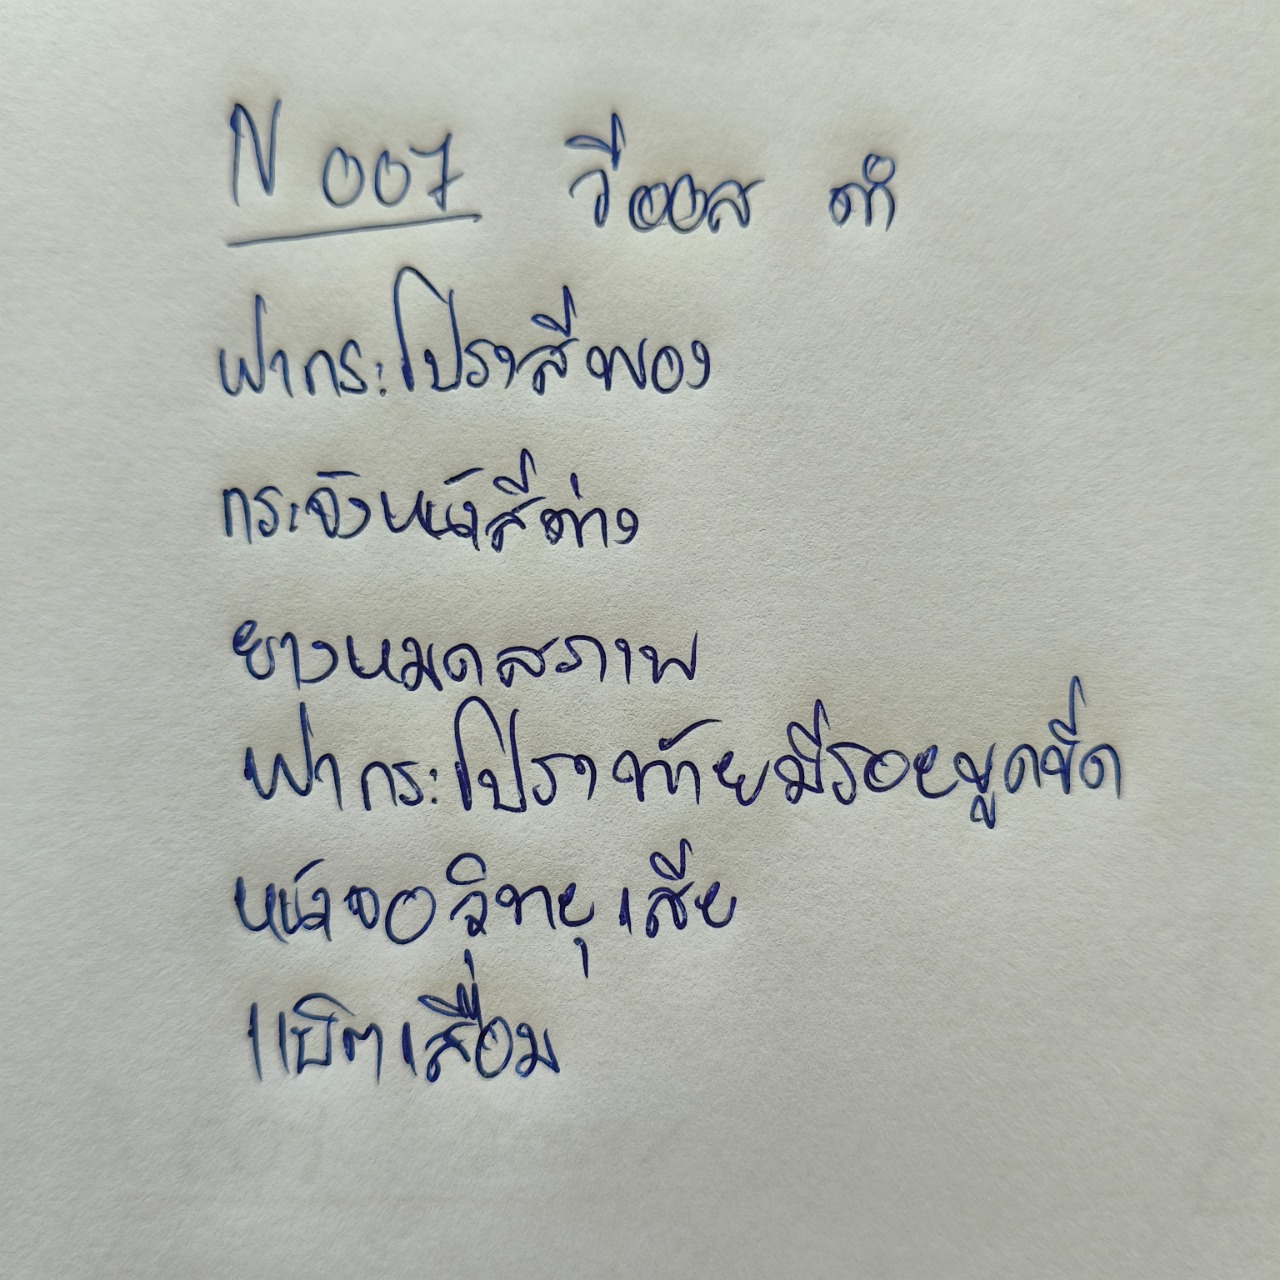 N 007 วีออส ดำ
ฝากระโปรงสีพอง
กระจังหน้าสีต่าง
ยางหมดสภาพ
ฝากระโปรงท้ายมีรอยขูดขีด
หน้าจอวิทยุเสีย
แบ็ตเสื่อม